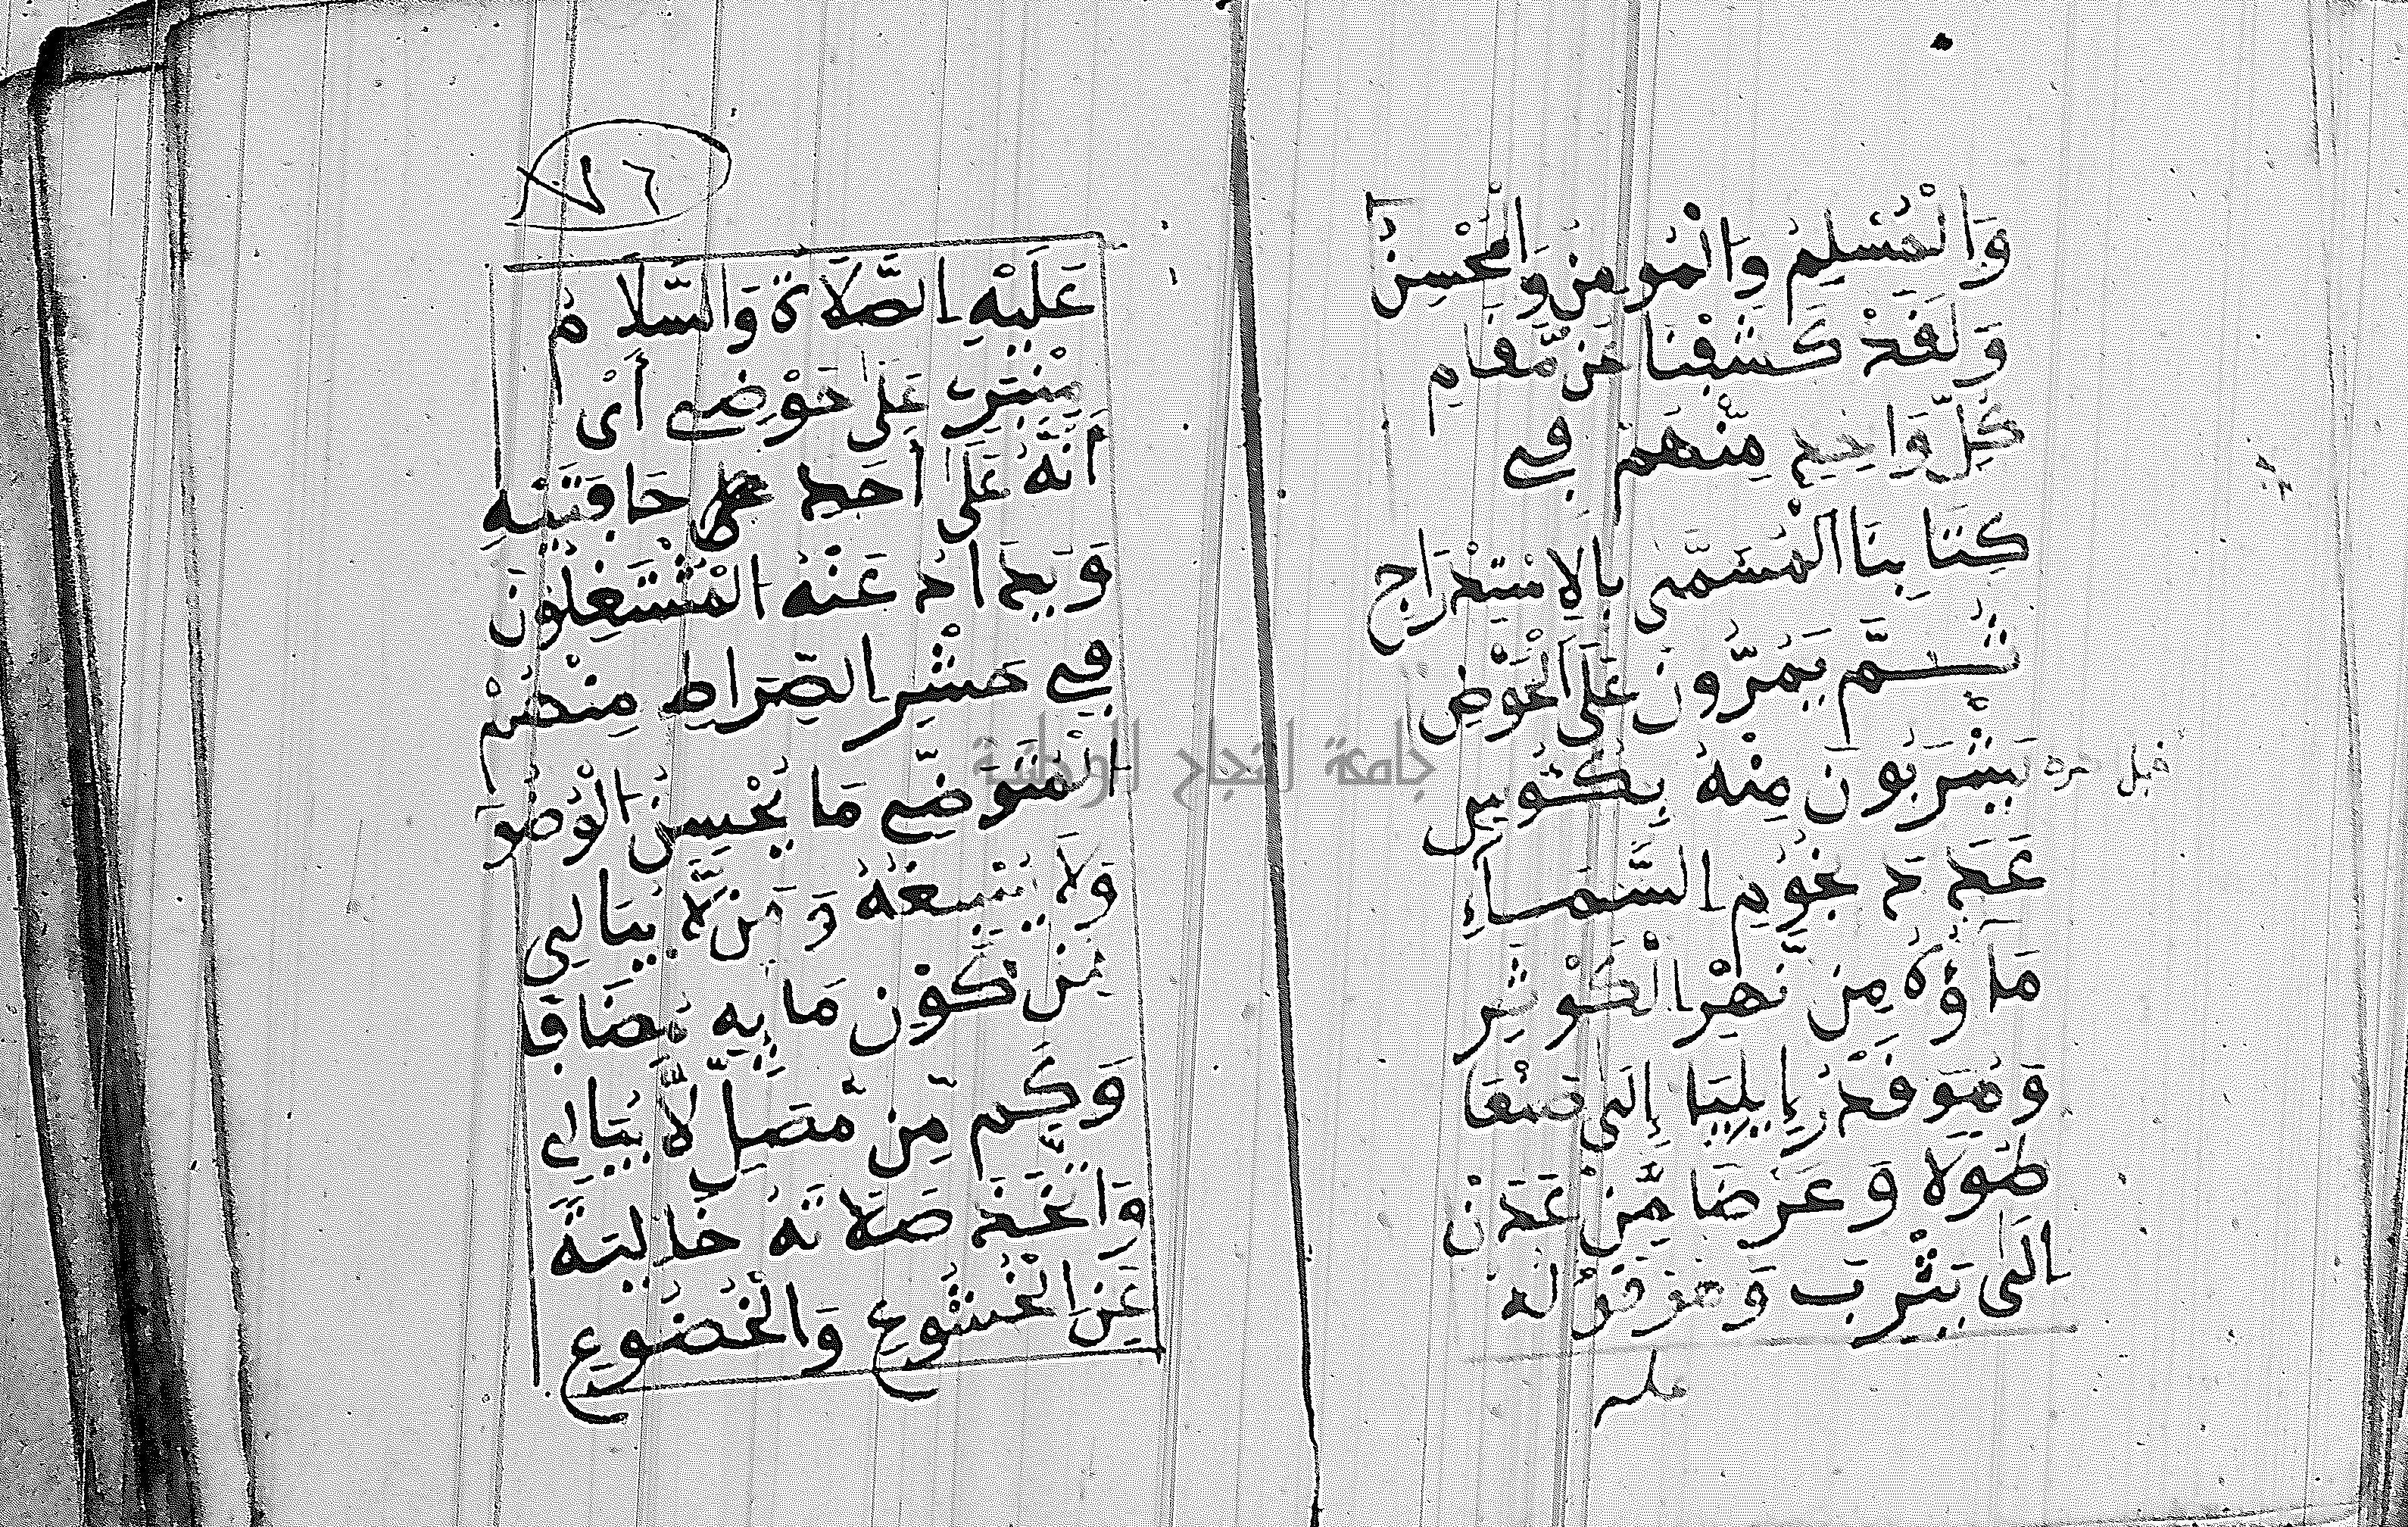 وَالْمُسْلِمُ وَالْمُومِنُ وَالْمُحْسِنُ
وَلَقَدْ كَشَفْنَا عَن مَّقَامِ
كُلِّ وَاحِدٍ مِّنْهُمْ فِي
كِتَابِنَا الْمُسَمَّى بِالِاسْتِدْرَاجِ
ثُمَّ يَمُرُّونَ عَلَى الْحَوْضِ
يَشْرَبُونَ مِنْهُ بِكُئُوسٍ
عَدَدَ نُجُومِ السَّمَاءِ
مَاؤُهُ مِن نَّهْرِ الْكَوْثَرِ
وَهُوَ قَدْرُ إِيلِيَا إِلَى صَنْعَا
طُولًا وَعَرْضًا مِّنْ عَدَنْ
إِلَى يَثْرِبَ وَهُوَ قَوْلُهُ
عليه
قبل
جامعة النجاح الوطنية
٧٦
عَلَيْهِ الصَّلَاةُ وَالسَّلَامُ
مِنْبَرِي عَلَى حَوْضِي أَيْ
أَنَّهُ عَلَى أَحَدِ حَافَتَيْهِ
وَيُذَادُ عَنْهُ الْمُشْتَغِلُونَ
فِي حَشْرِ الصِّرَاطِ مِنْهُمُ
الْمُتَوَضِّي مَا يُحْسِنُ الْوُضُو
وَلَا يُسْبِغُهُ وَمَن لَّا يُبَالِي
مِن كَوْنِ مَا بِهِ مُضَافًا
وَكَم مِّن مُّصَلٍّ لَّا يُبَالِي
وَاتَّخَذَ صَلَاتَهُ خَالِيَةً
عَنِ الْخُشُوعِ وَالْخُضُوعِ